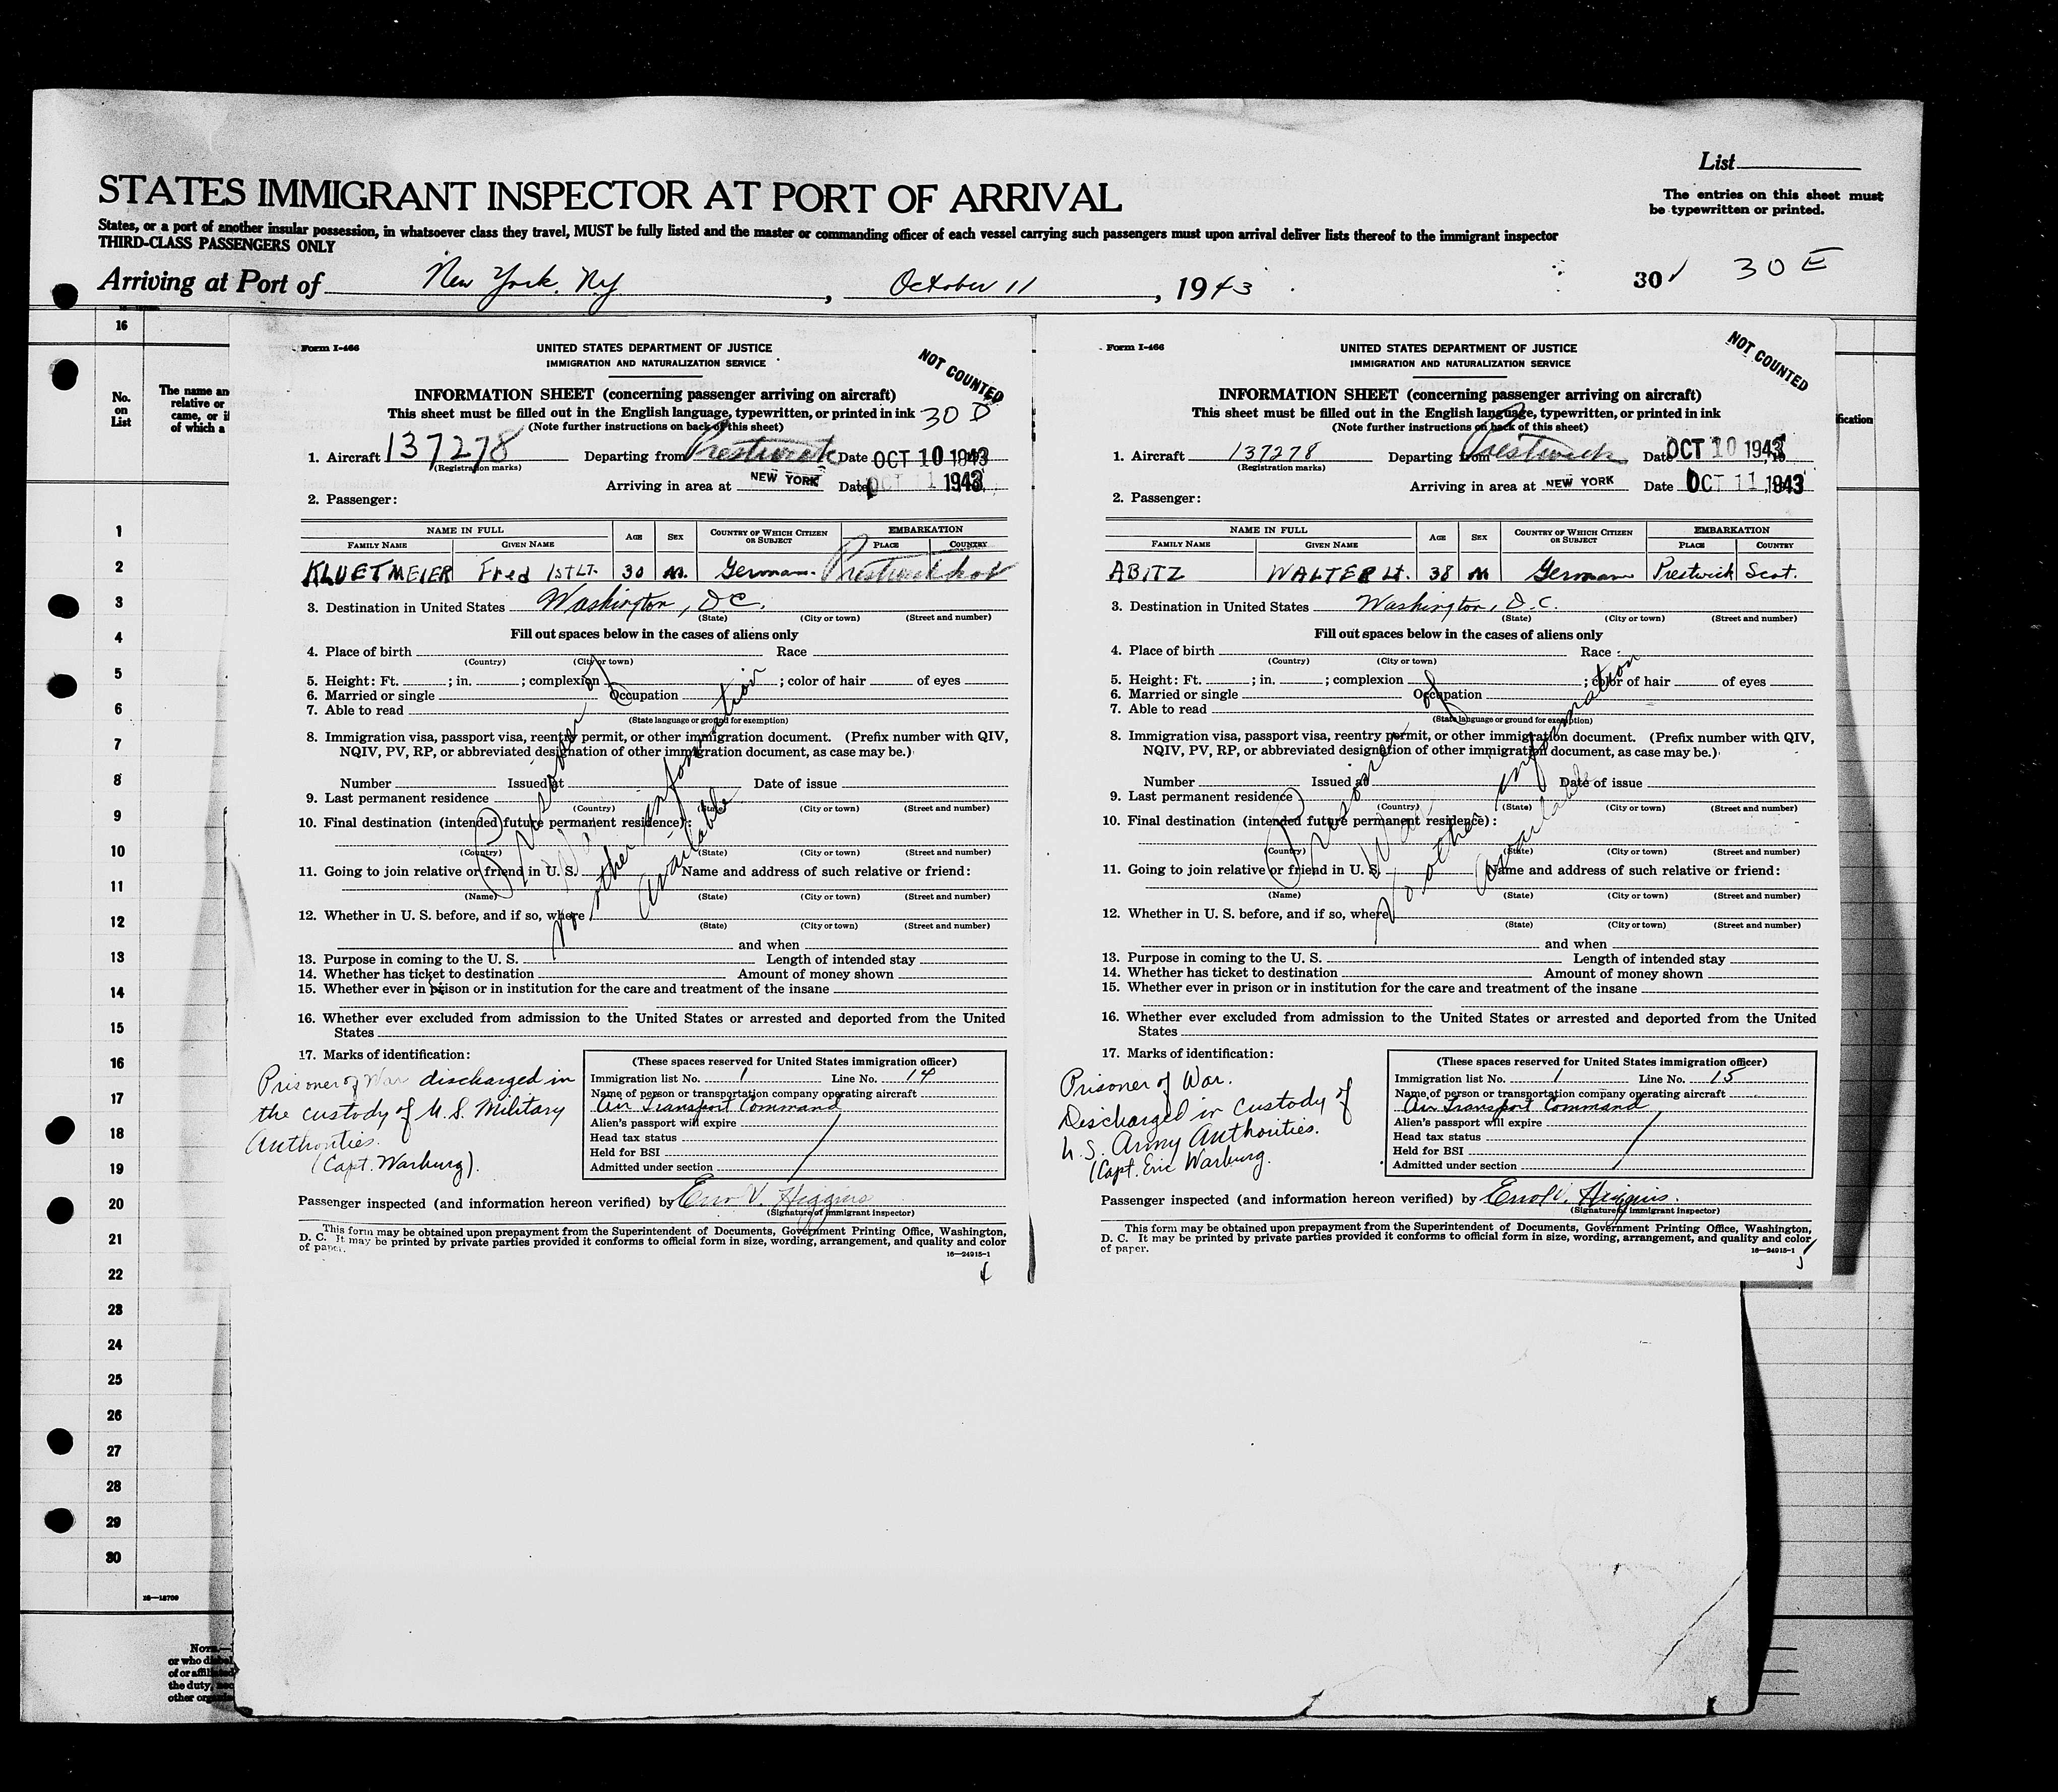 List
STATES IMMIGRANT INSPECTOR AT PORT OF ARRIVAL
The entries on this sheet must
be typewritten or printed.
States, or a port of another insular possession, in whatsoever class they travel, MUST be fully listed and the master or commanding officer of each vessel carrying such passengers must upon arrival deliver lists thereof to the immigrant inspector
THIRD-CLASS PASSENGERS ONLY
Arriving at Port of New York, Ny, October 11, 1943
30 30 E
16
No.
on
List
The name an
relative or
came, or if
of which a
1
2
3
4
5
6
7
8
9
10
11
12
13
14
15
16
17
18
19
20
21
22
23
24
25
26
27
28
29
30
16—18700
NOTE.—
or who
of or
the duty,
other
Form I-466
UNITED STATES DEPARTMENT OF JUSTICE
IMMIGRATION AND NATURALIZATION SERVICE
NOT COUNTED
INFORMATION SHEET (concerning passenger arriving on aircraft)
This sheet must be filled out in the English language, typewritten, or printed in ink 30 D
(Note further instructions on back of this sheet)
1. Aircraft 137278 Departing from Prestwick Date OCT 10 1943
(Registration marks)
Arriving in area at NEW YORK Date OCT 11 1943
2. Passenger:
NAME IN FULL AGE SEX COUNTRY OF WHICH CITIZEN OR SUBJECT EMBARKATION
FAMILY NAME GIVEN NAME PLACE COUNTRY
KLUETMEIER Fred 1ST LT. 30 M. German Prestwick Scot
3. Destination in United States Washington, DC.
(State) (City or town) (Street and number)
Fill out spaces below in the cases of aliens only
4. Place of birth Race
(Country) (City or town)
5. Height: Ft. ; in. ; complexion ; color of hair of eyes
6. Married or single Occupation
7. Able to read
(State language or ground for exemption)
8. Immigration visa, passport visa, reentry permit, or other immigration document. (Prefix number with QIV,
NQIV, PV, RP, or abbreviated designation of other immigration document, as case may be.)
Number Issued at Date of issue
9. Last permanent residence
(Country) (State) (City or town) (Street and number)
10. Final destination (intended future permanent residence):
(Country) (State) (City or town) (Street and number)
11. Going to join relative or friend in U. S. Name and address of such relative or friend:
(Name) (State) (City or town) (Street and number)
12. Whether in U. S. before, and if so, where
(State) (City or town) (Street and number)
and when
13. Purpose in coming to the U. S. Length of intended stay
14. Whether has ticket to destination Amount of money shown
15. Whether ever in prison or in institution for the care and treatment of the insane
16. Whether ever excluded from admission to the United States or arrested and deported from the United
States
Prisoner of
War
No other information
available
17. Marks of identification:
Prisoner of War discharged in
the custody of U.S. Military
Authorities.
(Capt. Warburg).
(These spaces reserved for United States immigration officer)
Immigration list No. 1 Line No. 14
Name of person or transportation company operating aircraft
Air Transport Command
Alien's passport will expire
Head tax status
Held for BSI
Admitted under section
Passenger inspected (and information hereon verified) by Errol V. Higgins
(Signature of immigrant inspector)
This form may be obtained upon prepayment from the Superintendent of Documents, Government Printing Office, Washington,
D. C. It may be printed by private parties provided it conforms to official form in size, wording, arrangement, and quality and color
of paper.
16—24915-1
4
Form I-466
UNITED STATES DEPARTMENT OF JUSTICE
IMMIGRATION AND NATURALIZATION SERVICE
NOT COUNTED
INFORMATION SHEET (concerning passenger arriving on aircraft)
This sheet must be filled out in the English language, typewritten, or printed in ink
(Note further instructions on back of this sheet)
1. Aircraft 137278 Departing from Prestwick Date OCT 10 1943
(Registration marks)
Arriving in area at NEW YORK Date OCT 11 1943
2. Passenger:
NAME IN FULL AGE SEX COUNTRY OF WHICH CITIZEN OR SUBJECT EMBARKATION
FAMILY NAME GIVEN NAME PLACE COUNTRY
ABITZ WALTER Lt. 38 M German Prestwick Scot.
3. Destination in United States Washington, D.C.
(State) (City or town) (Street and number)
Fill out spaces below in the cases of aliens only
4. Place of birth Race
(Country) (City or town)
5. Height: Ft. ; in. ; complexion ; color of hair of eyes
6. Married or single Occupation
7. Able to read
(State language or ground for exemption)
8. Immigration visa, passport visa, reentry permit, or other immigration document. (Prefix number with QIV,
NQIV, PV, RP, or abbreviated designation of other immigration document, as case may be.)
Number Issued at Date of issue
9. Last permanent residence
(Country) (State) (City or town) (Street and number)
10. Final destination (intended future permanent residence):
(Country) (State) (City or town) (Street and number)
11. Going to join relative or friend in U. S. Name and address of such relative or friend:
(Name) (State) (City or town) (Street and number)
12. Whether in U. S. before, and if so, where
(State) (City or town) (Street and number)
and when
13. Purpose in coming to the U. S. Length of intended stay
14. Whether has ticket to destination Amount of money shown
15. Whether ever in prison or in institution for the care and treatment of the insane
16. Whether ever excluded from admission to the United States or arrested and deported from the United
States
Prisoner of
War
No other information
available
17. Marks of identification:
Prisoner of War.
Discharged in custody of
U.S. Army Authorities.
(Capt. Eric Warburg.
(These spaces reserved for United States immigration officer)
Immigration list No. 1 Line No. 15
Name of person or transportation company operating aircraft
Air Transport Command
Alien's passport will expire
Head tax status
Held for BSI
Admitted under section
Passenger inspected (and information hereon verified) by Errol V. Higgins.
(Signature of immigrant inspector)
This form may be obtained upon prepayment from the Superintendent of Documents, Government Printing Office, Washington,
D. C. It may be printed by private parties provided it conforms to official form in size, wording, arrangement, and quality and color
of paper.
16—24915-1
5
ification